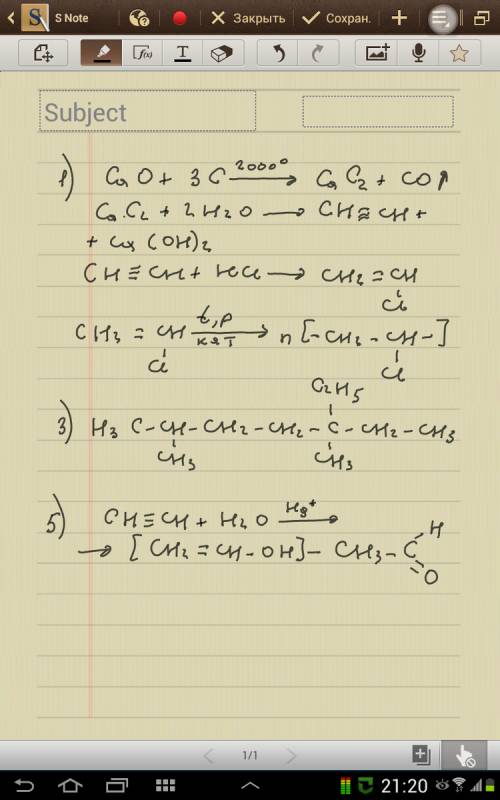 S Note
Закрыть
Сохран.
Subject
1) CaO + 3C 2000° → CaC2 + CO↑
CaC2 + 2H2O → CH≡CH +
+ Ca(OH)2
CH≡CH + HCl → CH2=CH
Cl
CH2=CH t,p кат → n[-CH2-CH-]
Cl Cl
C2H5
3) H3C-CH-CH2-CH2-C-CH2-CH3
CH3 CH3
5) CH≡CH + H2O Hg+ →
→ [CH2=CH-OH]- CH3-C H
O
1/1
21:20